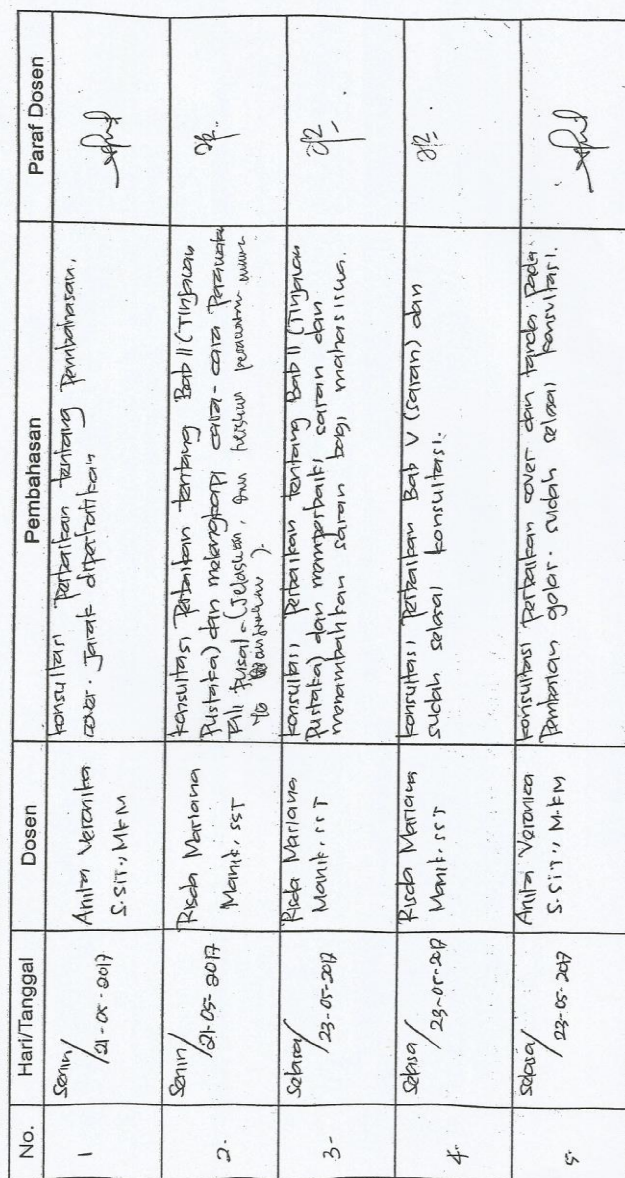 No. Hari/Tanggal Dosen Pembahasan Paraf Dosen
1 Senin/ 21-05-2017
Anita Veronika
S.SiT., MKM
konsultasi Perbaikan tentang Pembahasan,
cover. Jarak diperhatikan
2. Senin/ 21-05-2017
Risda Mariana
Manik, SST
konsultasi Perbaikan tentang Bab II (Tinjauan
Pustaka) dan melengkapi cara-cara Perawatan
Tali Pusat (Jelaskan,
3- Selasa/ 23-05-2017
Risda Mariana
Manik, SST
konsultasi perbaikan tentang Bab II (Tinjauan
Pustaka) dan memperbaiki saran dan
menambahkan saran bagi mahasiswa.
4. Selasa/ 23-05-2017
Risda Mariana
Manik, SST
konsultasi perbaikan Bab V (Saran) dan
sudah selesai konsultasi.
5. Selasa/ 23-05-2017
Anita Veronica
S.SiT., M.KM
konsultasi Perbaikan cover dan tanda pada
gelar. sudah selesai konsultasi.